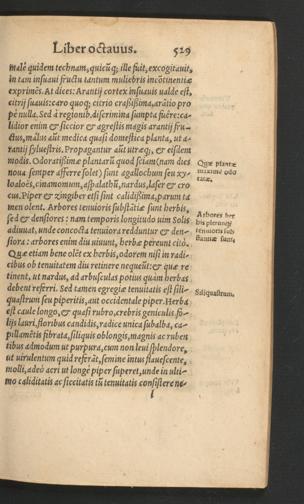 Liber octauus. 529
malè quidem technam, quicūq; ille fuit, excogitauit,
in tam insuaui fructu tantum muliebris incōtinentiæ
exprimēs. At dices: Arantij cortex insuauis ualde est,
citrij suauis: caro quoq; citrio crassissima, arātio pro
pe nulla. Sed à regionib. discrimina sumpta fuēre: ca-
lidior enim & siccior & agrestis magis arantij fru-
ctus, malus aūt medica quasi domestica planta, ut a-
rantij syluestris. Propagantur aūt utræq;, & eisdem
modis. Odoratissimæ plantarū quod sciam (nam dies
noua semper afferre solet) sunt agallochum seu xy-
loaloës, cinamomum, aspalathū, nardus, laser & cro
cus. Piper & zingiber etsi sint calidissima, parum ta
men olent. Arbores tenuioris substātiæ sunt herbis,
sed & densiores: nam temporis longitudo uim Solis
adiuuat, unde concocta tenuiora redduntur & den-
siora: arbores enim diu uiuunt, herbæ pereunt citò.
Quæ etiam bene olēt ex herbis, odorem nisi in radi-
cibus ob tenuitatem diu retinere nequeūt: & quæ re
tinent, ut nardus, ad arbusculas potius quàm herbas
debent referri. Sed tamen egregiæ tenuitatis est sili-
quastrum seu piperitis, aut occidentale piper. Herba
est caule longo, & quasi rubro, crebris geniculis fo-
lijs lauri, floribus candidis, radice unica subalba, ca-
pillamētis fibrata, siliquis oblongis, magnis ac ruben
tibus admodum ut purpura, cum non leui splendore,
ut uirulentum quid referāt, semine intus flauescente,
molli, adeò acri ut longè piper superet, unde in ulti-
mo caliditatis ac siccitatis tū tenuitatis consistere ne-
Quæ plantæ
maximè odo
ratæ.
Arbores her
bis plerunq;
tenuioris sub
stantiæ sunt.
Siliquastrum.